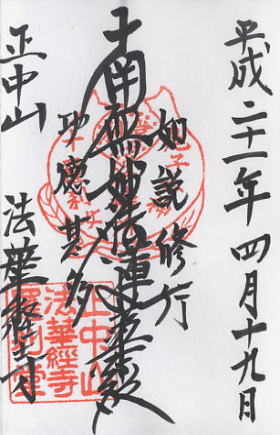 平成二十一年四月十九日
如説修行
南無妙法蓮華経
功慶甚多
正中山 法華経寺
正中山
法華經寺